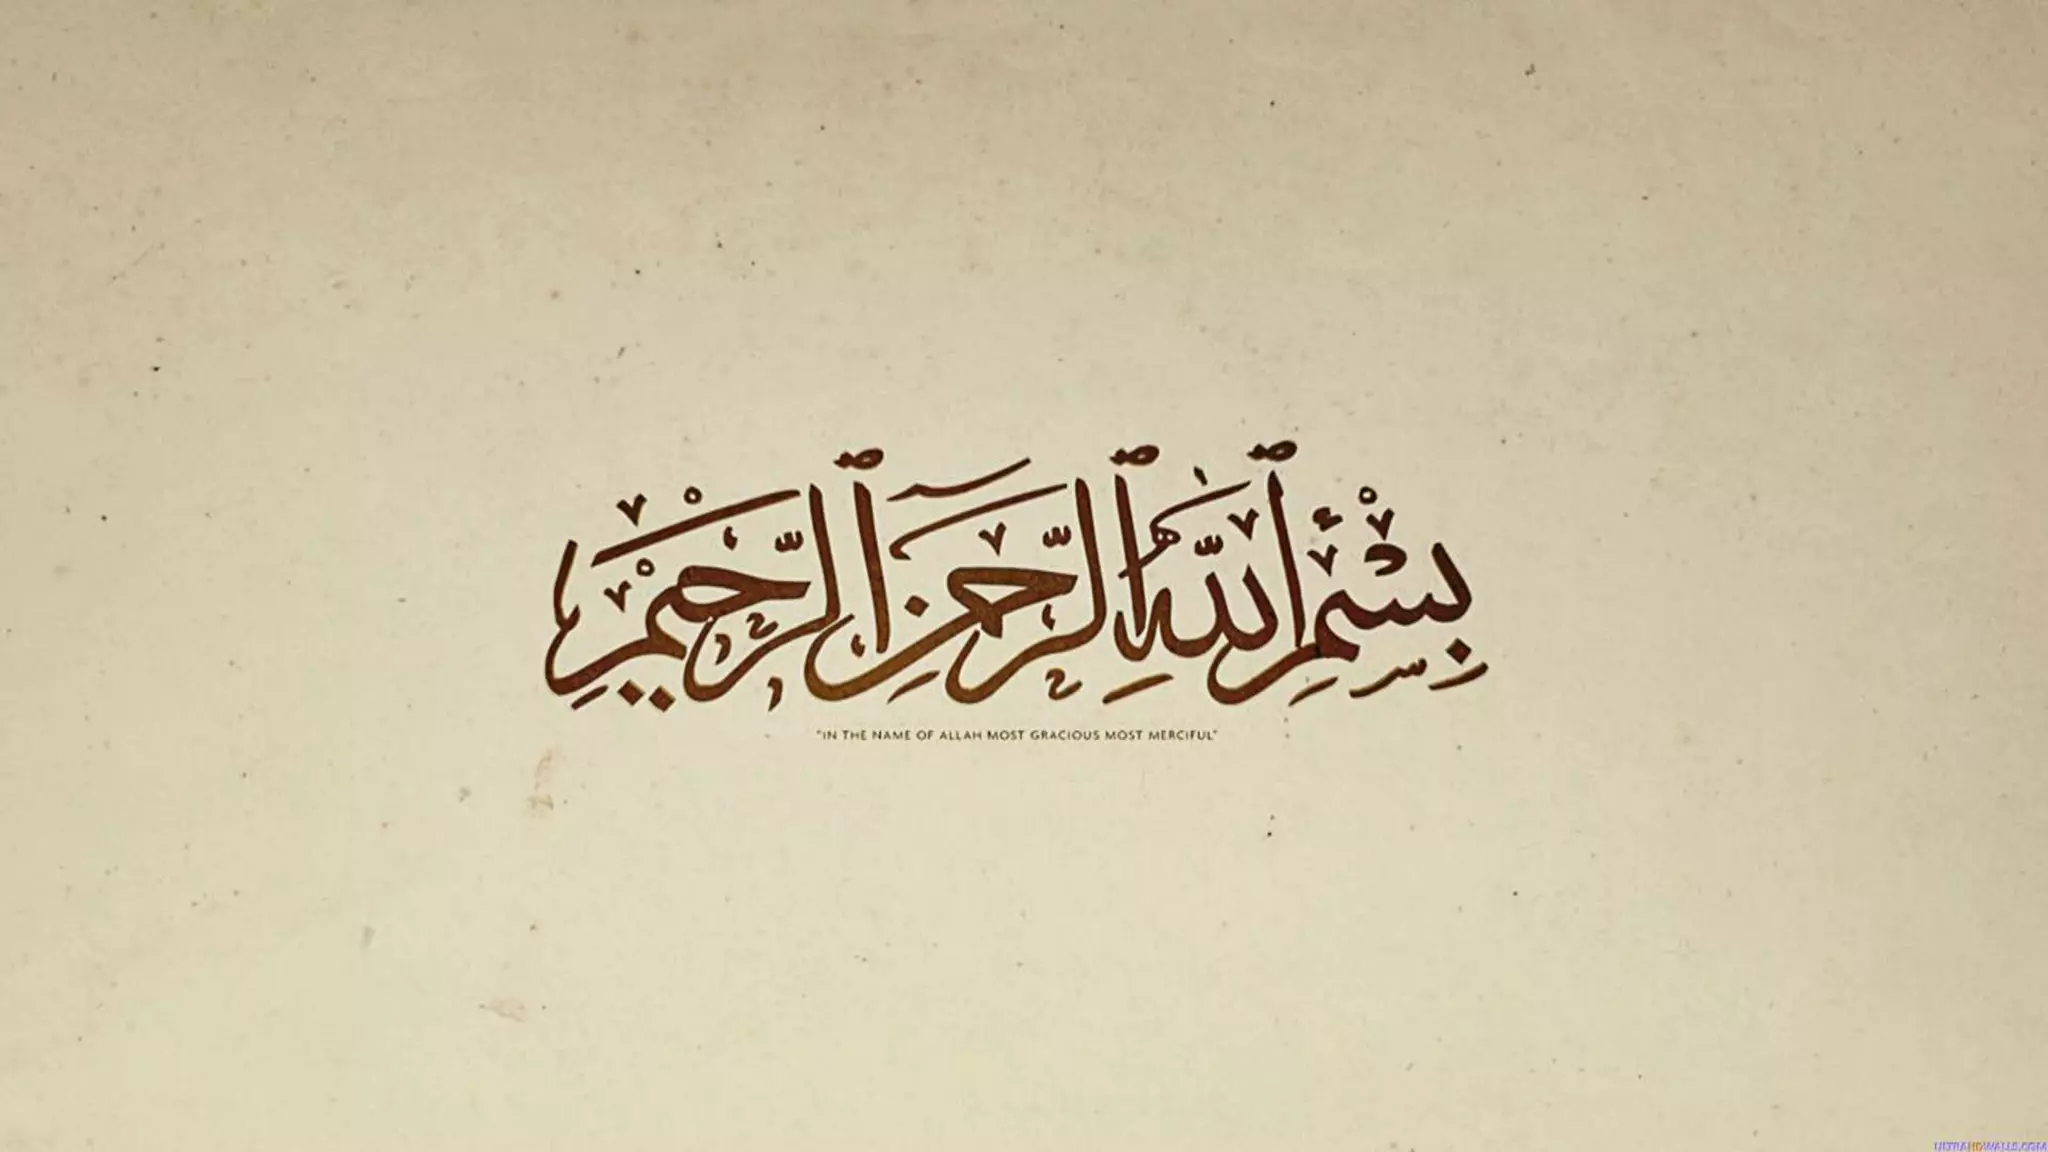 بِسْمِ ٱللَّهِ ٱلرَّحْمَٰنِ ٱلرَّحِيمِ
"IN THE NAME OF ALLAH MOST GRACIOUS MOST MERCIFUL"